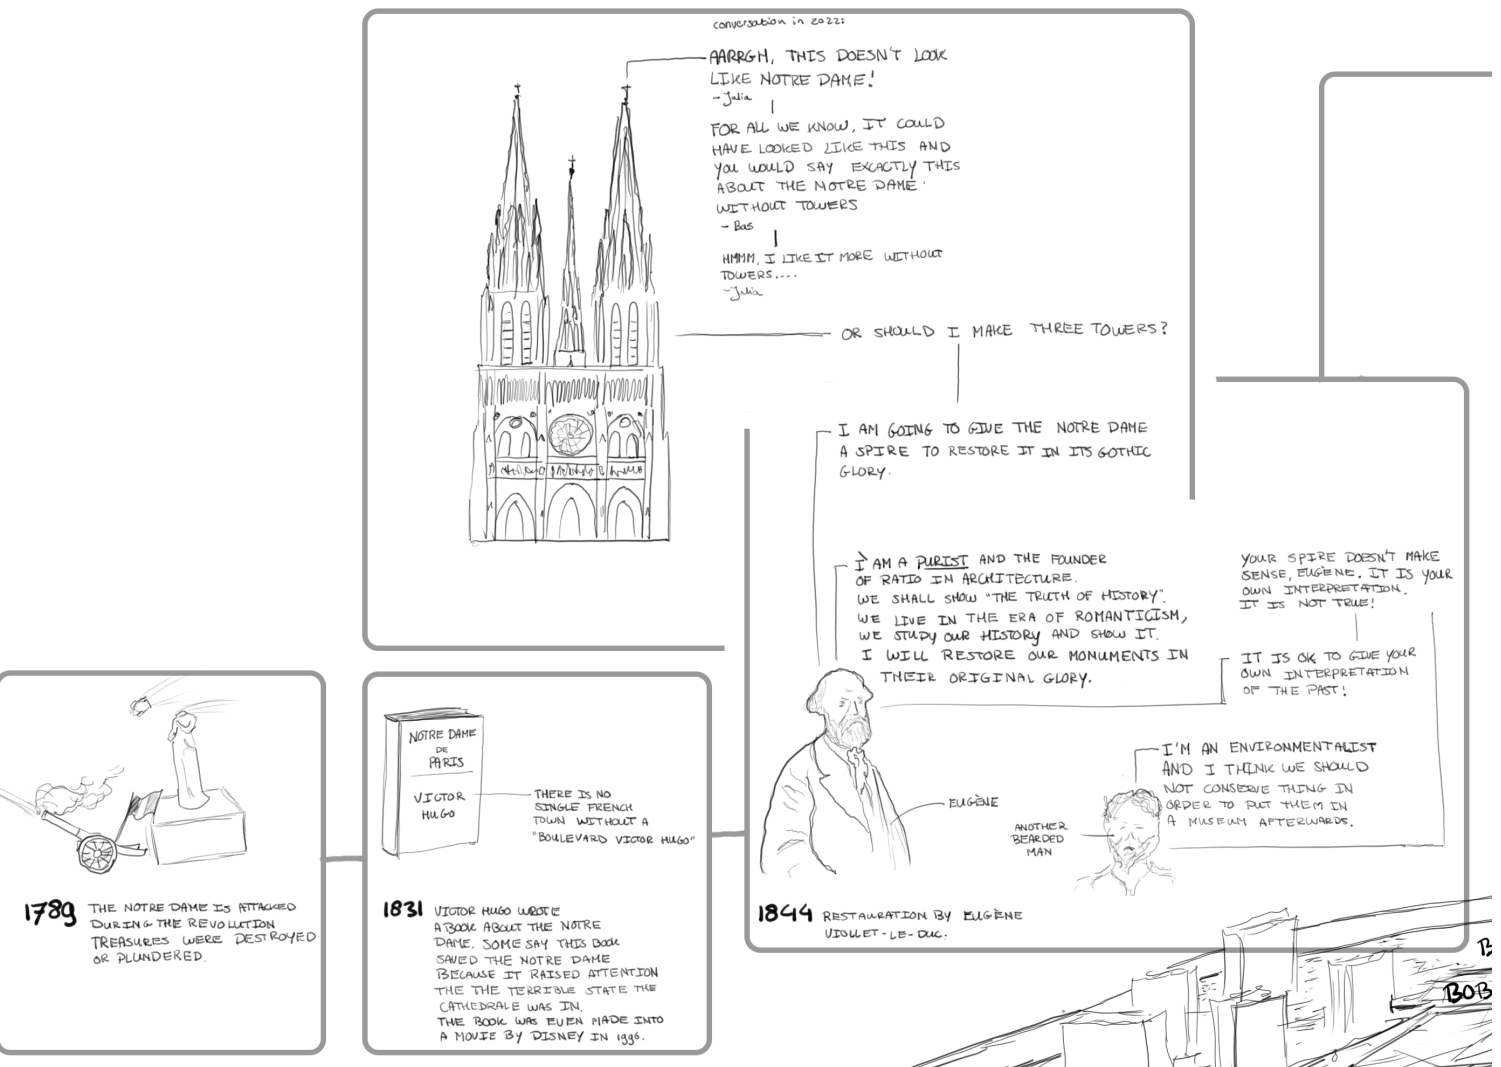 conversation in 2022:
AARRGH, THIS DOESN'T LOOK
LIKE NOTRE DAME!
- Julia
FOR ALL WE KNOW, IT COULD
HAVE LOOKED LIKE THIS AND
YOU WOULD SAY EXCACTLY THIS
ABOUT THE NOTRE DAME
WITHOUT TOWERS
- Bas
HMMM, I LIKE IT MORE WITHOUT
TOWERS....
- Julia
OR SHOULD I MAKE THREE TOWERS?
I AM GOING TO GIVE THE NOTRE DAME
A SPIRE TO RESTORE IT IN ITS GOTHIC
GLORY.
I AM A PURIST AND THE FOUNDER
OF RATIO IN ARCHITECTURE.
WE SHALL SHOW "THE TRUTH OF HISTORY".
WE LIVE IN THE ERA OF ROMANTICISM,
WE STUDY OUR HISTORY AND SHOW IT.
I WILL RESTORE OUR MONUMENTS IN
THEIR ORIGINAL GLORY.
YOUR SPIRE DOESN'T MAKE
SENSE, EUGÈNE. IT IS YOUR
OWN INTERPRETATION.
IT IS NOT TRUE!
IT IS OK TO GIVE YOUR
OWN INTERPRETATION
OF THE PAST!
I'M AN ENVIRONMENTALIST
AND I THINK WE SHOULD
NOT CONSERVE THING IN
ORDER TO PUT THEM IN
A MUSEUM AFTERWARDS.
EUGÈNE
ANOTHER
BEARDED
MAN
1844 RESTAURATION BY EUGÈNE
VIOLLET-LE-DUC.
NOTRE DAME
DE
PARIS
VICTOR
HUGO
THERE IS NO
SINGLE FRENCH
TOWN WITHOUT A
"BOULEVARD VICTOR HUGO"
1831 VICTOR HUGO WROTE
A BOOK ABOUT THE NOTRE
DAME. SOME SAY THIS BOOK
SAVED THE NOTRE DAME
BECAUSE IT RAISED ATTENTION
THE THE TERRIBLE STATE THE
CATHEDRALE WAS IN.
THE BOOK WAS EVEN MADE INTO
A MOVIE BY DISNEY IN 1996.
1789 THE NOTRE DAME IS ATTACKED
DURING THE REVOLUTION
TREASURES WERE DESTROYED
OR PLUNDERED.
B
BOB